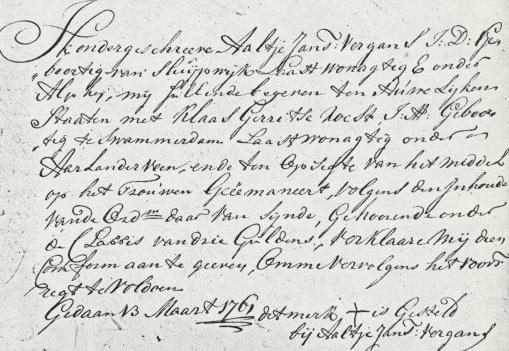 Ik ondergeschreeve Aaltje Jans: Vergans J: D: Ge„
„boortig van Sluijpwijk Laast wonagtig onder
Alphen, mij zullende begeven ten Huwelijken
Staaten met Klaas Gerritse Voest J: M: Geboo„
„tig te Swammerdam Laast wonagtig onder
Aarlanderveen, ende ten Opsigte van het middel
op het Trouwen Geëmaneert, volgens den Inhoude
vande Ordn daar van Zynde, Gehoorende onder
de Classis van drie Guldens, verklaare Mij dien
Comform aan te geeven, Omme vervolgens het voorn
regt te Voldoen
Gedaan 13 Maart 1761 det merk + is Gesteld
bij Aaltje Jans: Vergans